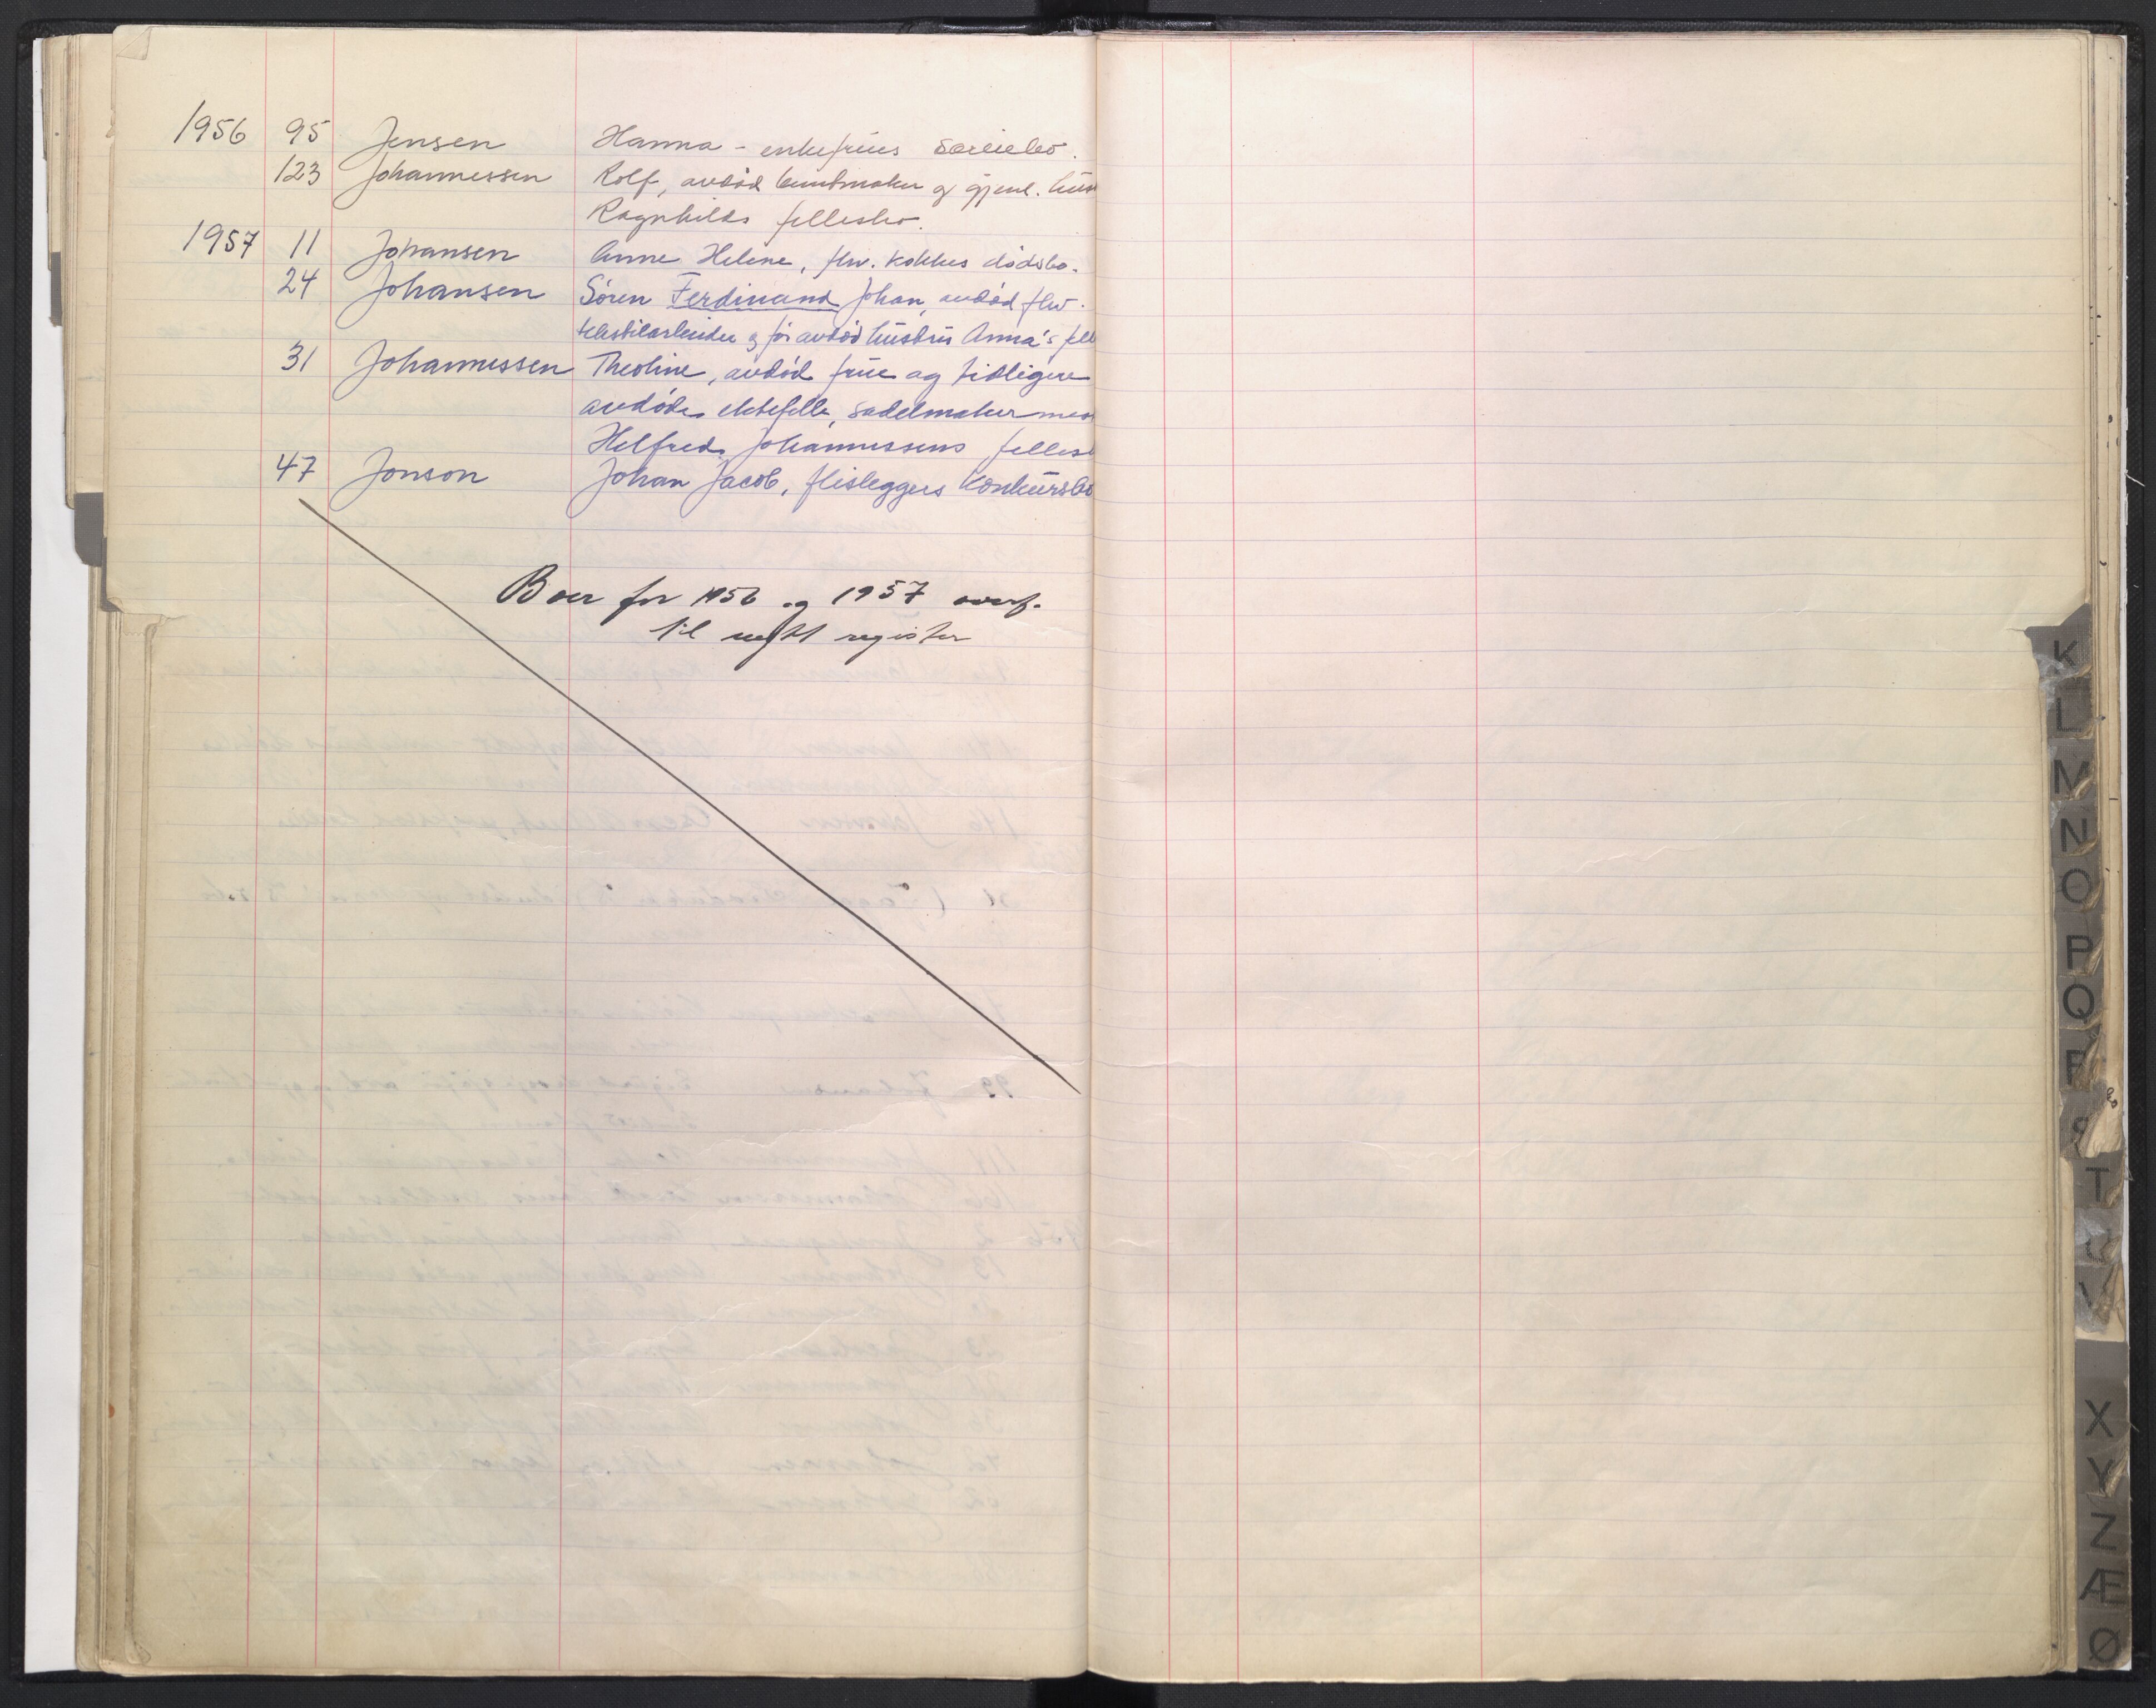 1956 95 Jensen Hanna - enkefrues særeiebo.
123 Johannessen Rolf, avdød buntmaker og gjenl. hus
Ragnhilds fellesbo.
1957 11 Johansen Anne Helene, fhv. kokkes dødsbo.
24 Johansen Søren Ferdinand Johan, avdød fhv.
tekstilarbeider og før avdød hustru Anna's fell
31 Johannessen Theoline, avdød frue og tidligere
avdøde ektefelle, sadelmaker
Helfred Johannessens felles
47 Jonson Johan Jacob, flisleggers konkursbo
Boer for 1956 og 1957 overf.
til nytt register
K
L
M
N
O
P
Q
R
S
T
U
V
X
Y
Z
Æ
Ø